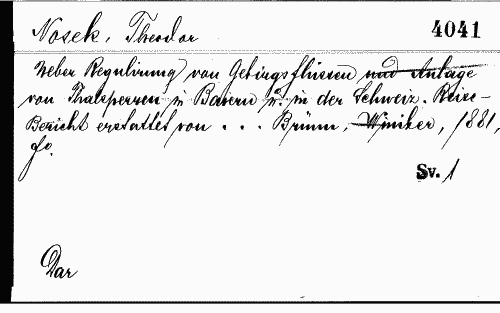 Nosek, Theodor 4041
Ueber Regulirung von Gebirgsflüssen und Anlage
von Thalsperren in Baiern u. in der Schweiz. Reise-
Bericht erstattet von . . . Brünn, Winiker, 1881,
8o.
Sv. 1
Dar